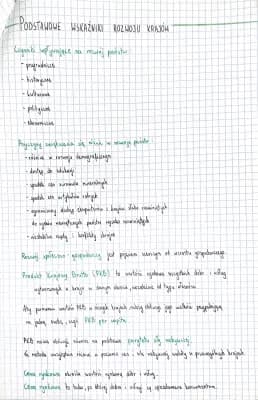 PODSTAWOWE WSKAŹNIKI ROZWOJU KRAJÓW
Czynniki wpływające na rozwój państw:
- przyrodnicze
- historyczne
- kulturowe
- polityczne
- ekonomiczne
Przyczyny zwiększania się różnic w rozwoju państw:
- różnice w rozwoju demograficznym
- dostęp do edukacji
- spadek cen surowców mineralnych
- spadek cen artykułów rolnych
- ograniczony dostęp
do rynków zewnętrznych państw wysoko rozwiniętych
- niestabilne rządy i konflikty zbrojne
Rozwój społeczno-gospodarczy jest pojęciem szerszym od wzrostu gospodarczego.
Produkt Krajowy Brutto (PKB) to wartość rynkowa wszystkich dóbr i usług
wytworzonych w kraju w danym czasie, niezależnie od typu
Aby porównać wartość PKB w różnych krajach należy obliczyć jego wartość przypadającą
na jedną osobę, czyli PKB per capita.
PKB można obliczyć również na podstawie parytetu siły nabywczej.
Ta metoda uwzględnia różnice w poziomie cen i siły nabywczej waluty w poszczególnych krajach.
Cena rynkowa określa wartość rynkową dóbr i usług.
Cena rynkowa to taka, po której dobra i usługi są sprzedawane konsumentom.